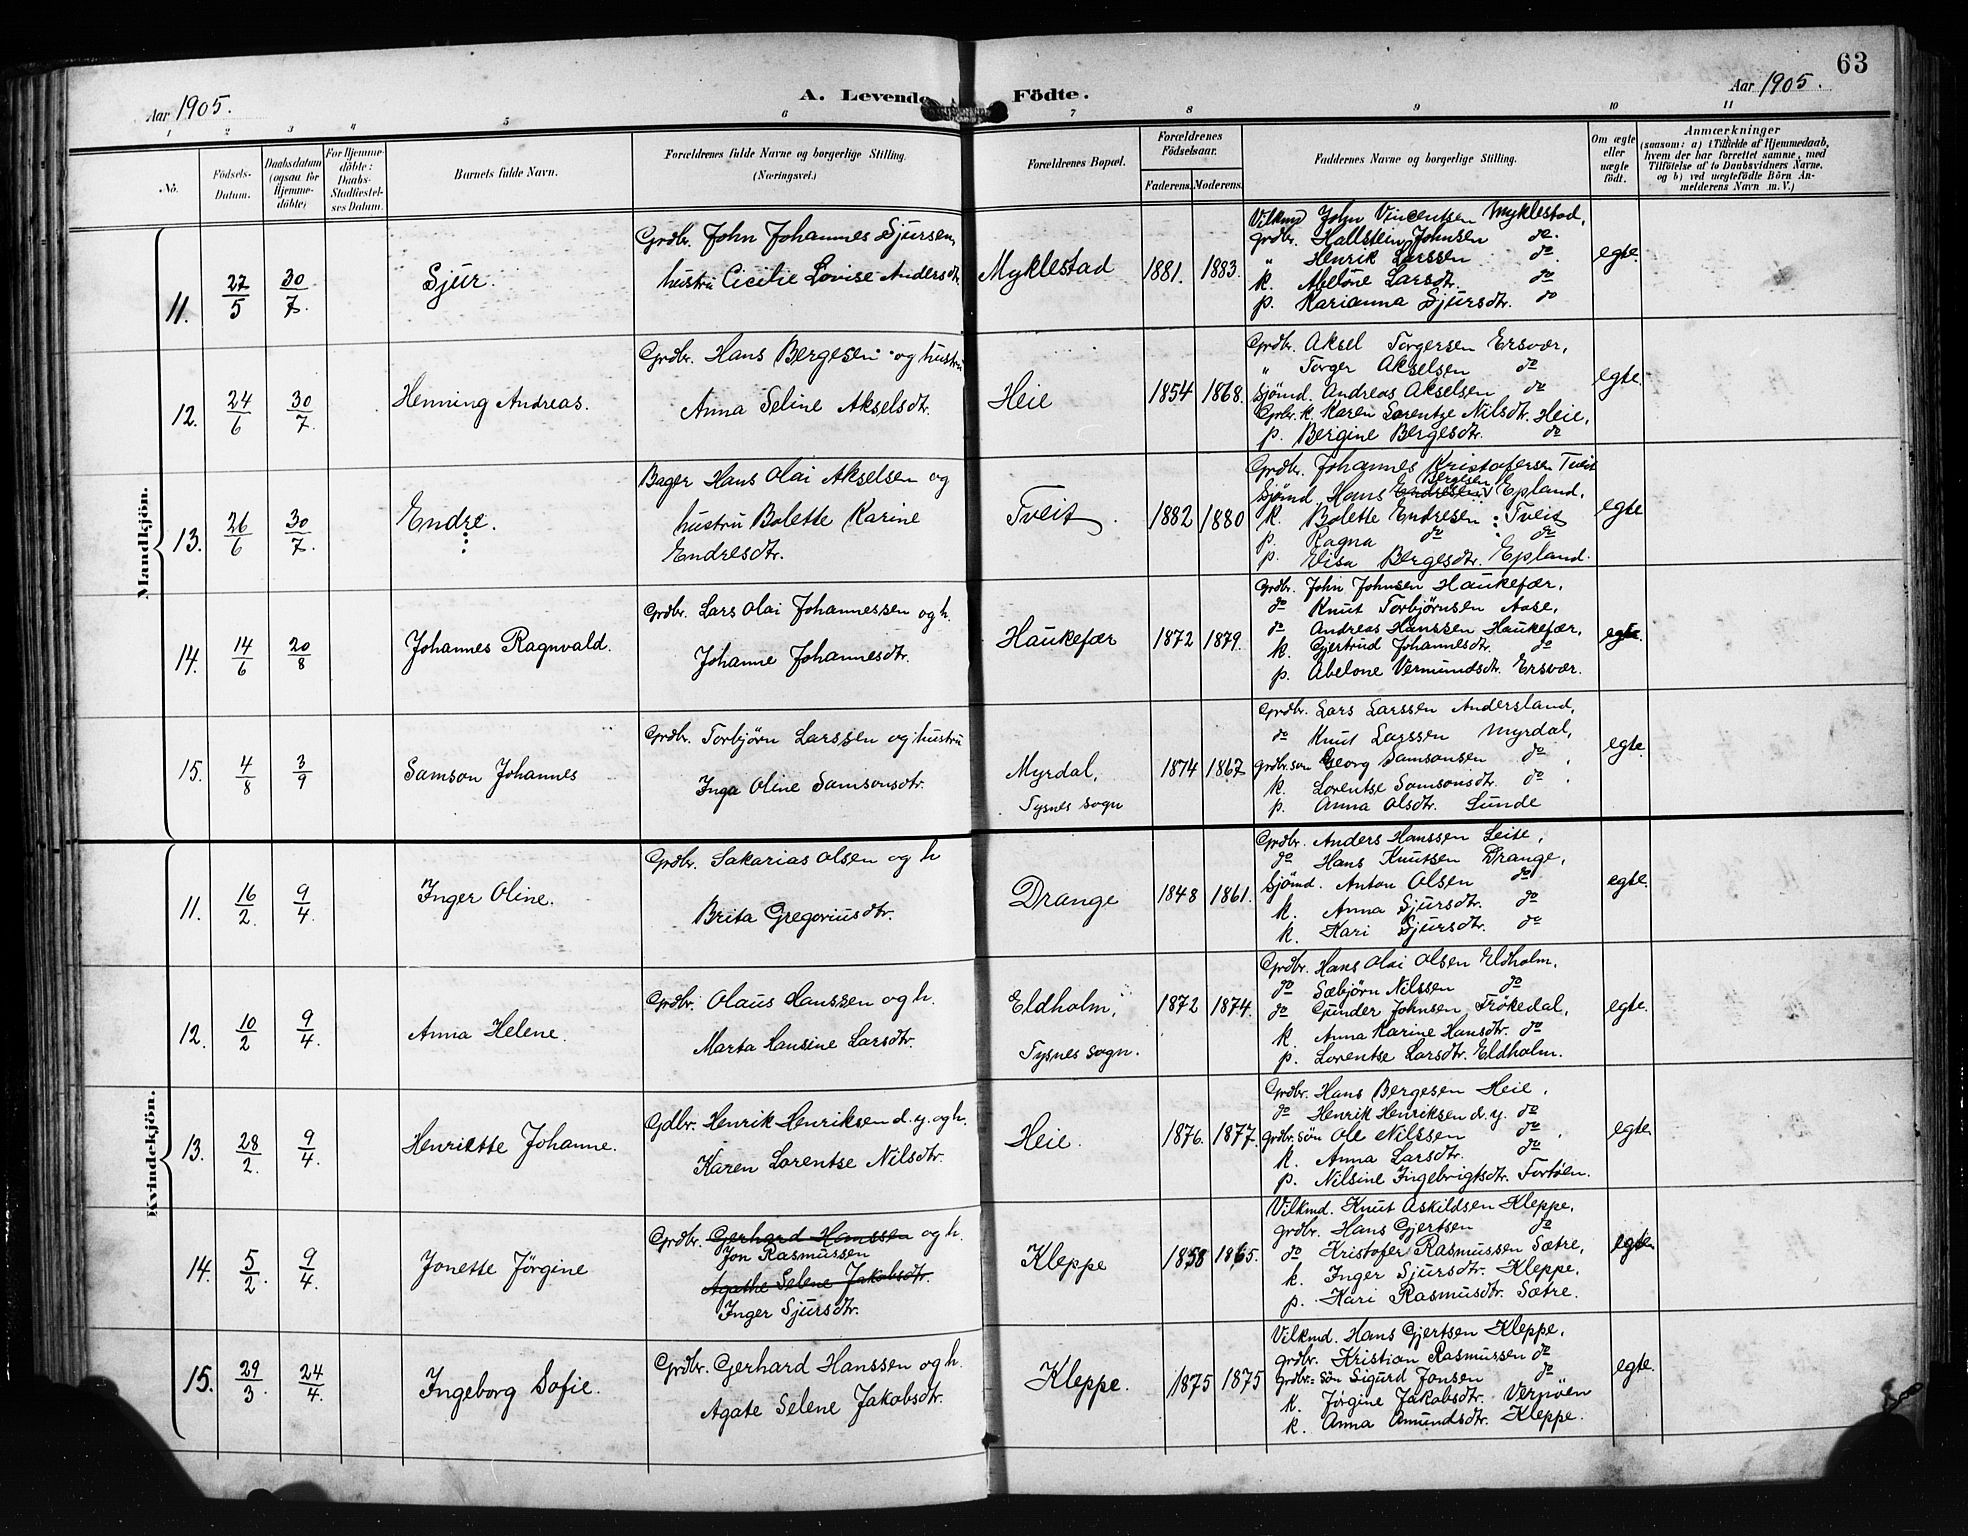 63
Aar 1905.
A. Levende Födte.
Aar 1905.
1 2 3 4 5 6 7 8 9 10 11
No.
Födsels-
Datum.
Daabsdatum
(ogsaa for
Hjemme-
döbte)
For Hjemme-
döbte:
Daabs-
Stadfæstel-
ses Datum.
Barnets fulde Navn.
Forældrenes fulde Navne og borgerlige Stilling.
(Næringsvei.)
Forældrenes Bopæl.
Forældrenes
Födselsaar.
Faderens. Moderens.
Faddernes Navne og borgerlige Stilling.
Om ægte
eller
uægte
födt.
Anmærkninger
(saasom: a) i Tilfælde af Hjemmedaab,
hvem der har forrettet samme, med
Tilföielse af to Daabsvidners Navne,
og b) ved uægtefödte Börn An-
melderens Navn m. V.)
Mandkjön.
11. 27/5 30/7. Sjur.
Grdbr. John Johannes Sjursen,
hustru Cicilie Lovise Andersdtr.
Myklestad 1881. 1883.
Vilkmd John Vincentsen Myklestad,
Grdbr. Hallstein Johnsen do.
" Henrik Larssen do.
k. Abelone Larsdtr. do
p. Marianna Sjursdtr. do
egte.
12. 24/6 30/7. Henning Andreas.
Grdbr. Hans Bergesen og hustru
Anna Seline Akselsdtr.
Heie 1854 1868.
Grdbr. Aksel Torgersen Ersvær,
" Torger Akselsen do
Sjömd. Andreas Akselsen do
Grbr. k. Karen Lorentze Nilsdtr. Heie,
p. Bergine Bergesdtr. do
egte.
13. 26/6 30/7. Endre.
Bager Hans Olai Akselsen og
hustru Bolette Karine
Endresdtr.
Tveit. 1882 1880
Grdbr. Johannes Kristofersen Tveit
Bergesen
Sjömd. Hans Endresen Epland,
k. Bolette Endresen : Tveit
p. Ragna do : do
p. Elisa Bergesdtr. Epland.
egte
14. 14/6 20/8 Johannes Ragnvald.
Grdbr. Lars Olai Johannessen og h.
Johanne Johannesdtr.
Haukefær 1872 1879.
Grdbr. John Johnsen Haukefær,
do Knut Torbjörnsen Aase,
do Andreas Hanssen Haukefær,
k. Gjertrud Johannesdtr. do
p. Abelone Vermundsdtr. Ersvær.
egte.
15. 4/8 3/9 Samson Johannes
Grdbr. Torbjörn Larssen og hustru
Inga Oline Samsonsdtr.
Myrdal,
Tysnes sogn
1874 1867
Grdbr. Lars Larssen Andersland,
do Knut Larssen Myrdal,
grdbr. søn Georg Samsonsen do
k. Lorentse Samsonsdtr. do
p. Anna Olsdtr. Lunde
egte.
Kvindekjön.
11. 16/2. 9/4. Inger Oline.
Grdbr. Sakarias Olsen og h
Brita Gregoriusdtr.
Drange 1848 1861.
Grdbr. Anders Hanssen Leite,
do Hans Knutsen Drange,
Sjömd. Anton Olsen do
k. Anna Sjursdtr. do
k. Kari Sjursdtr. do
egte.
12. 10/2 9/4. Anna Helene.
Grdbr. Olaus Hanssen og h.
Marta Hansine Larsdtr.
Eldholm,
Tysnes sogn.
1872 1874.
Grdbr. Hans Olai Olsen Eldholm,
do Sæbjörn Nilssen do
do Gunder Johnsen Frökedal,
k. Anna Karine Hansdtr. do
p. Lorentse Larsdtr. Eldholm.
egte.
13. 28/2. 9/4. Henriette Johanne.
Gdbr. Henrik Henriksen d. y. og h.
Karen Lorentse Nilsdtr.
Heie. 1876. 1877.
Grdbr. Hans Bergesen Heie,
do Henrik Henriksen d. y. do
grdbr. søn Ole Nilssen do
k. Anna Larsdtr. do
p. Nilsine Ingebrigtsdtr. Fortøen.
egte
14. 5/2. 9/4. Jonette Jörgine
Grdbr. Gerhard Hanssen og h.
Jon Rasmussen
Agathe Selene Jakobsdtr.
Inger Sjursdtr.
Kleppe 1858 1865.
Vilkmd. Knut Askildsen Kleppe,
grdbr. Hans Gjertsen do
do Kristofer Rasmussen Sætre,
k. Inger Sjursdtr. Kleppe,
p. Kari Rasmusdtr. Sætre.
egte
15. 29/3. 24/4. Ingeborg Sofie.
Grdbr. Gerhard Hanssen og h.
Agate Selene Jakobsdtr.
Kleppe. 1875 1875
Vilkmd. Hans Gjertsen Kleppe,
grdbr. Kristian Rasmussen do
Grdbr. søn Sigurd Jonsen do
k. Jörgine Jakobsdtr. Verpöen
k. Anna Amundsdtr. Kleppe.
egte.